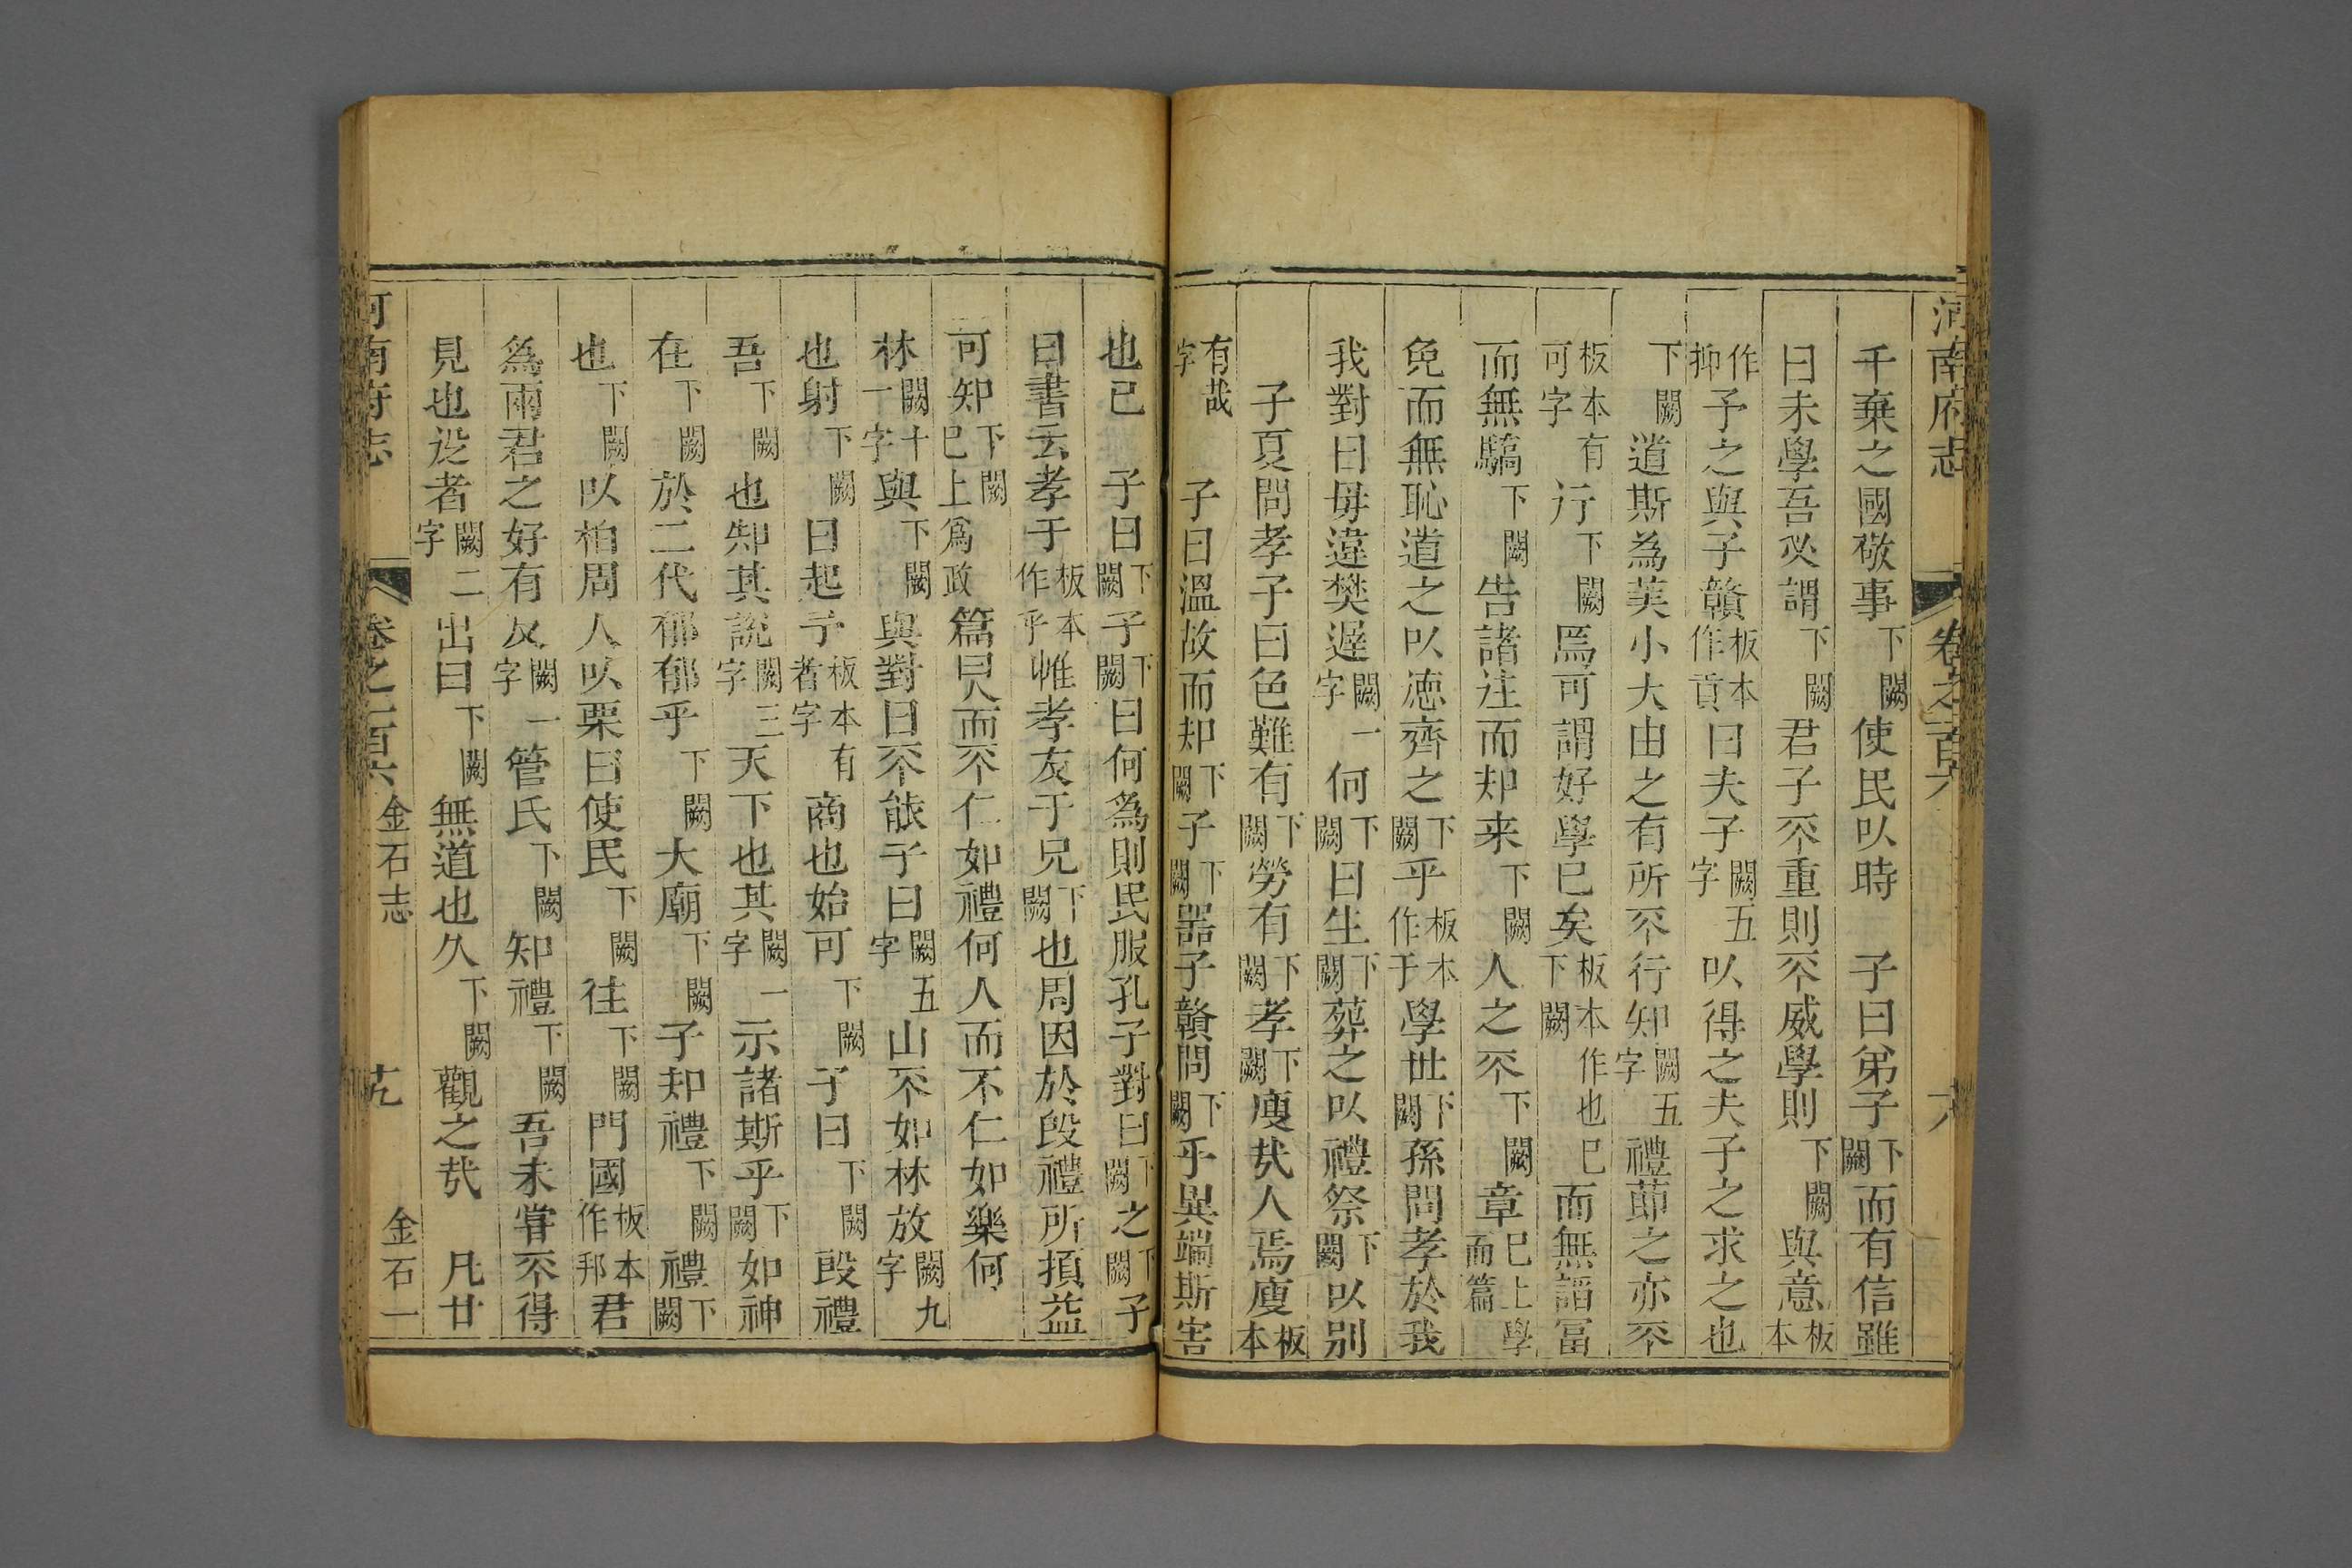 河南府志 卷之一百六
千乗之國敬事下闕使民以時 子曰弟子下闕而有信雖
曰未學吾必謂下闕君子不重則不威學則下闕與意板本
作抑予之與子贛板本作貢曰夫子闕五字以得之夫子之求之也
下闕道斯為美小大由之有所不行知闕五字禮節之亦不
可字板本有行下闕焉可謂好學已矣板本作也已下闕而無謟冨
而無驕下闕告諸注而知来下闕人之不下闕章已上學而篇
免而無恥道之以徳齊之下闕乎板本作于學世下闕孫問孝於我
我對曰毋違樊遅闕一字何下闕曰生下闕葬之以禮祭下闕以别
子夏問孝子曰色難有下闕勞有下闕孝下闕廋㢤人焉廋板本
有哉字 子曰溫故而知下闕子下闕器子贛問下闕乎異端斯害
也已 子曰下闕子下闕曰何為則民服孔子對曰下闕之下闕子
曰書云孝于板本作乎惟孝友于兄下闕也周因於殷禮所損益
可知下闕已上為政篇曰人而不仁如禮何人而不仁如樂何
林闕十一字與下闕與對曰不能子曰闕五字山不如林放闕九字
也射下闕曰起予板本有者字商也始可下闕子曰下闕殷禮
吾下闕也知其説闕三字天下也其闕一字示諸斯乎下闕如神
在下闕於二代郁郁乎下闕大廟下闕子知禮下闕禮下闕
也下闕以柏周人以栗曰使民下闕往下闕門國板本作邦君
為兩君之好有反闕一字管氏下闕知禮下闕吾未甞不得
見也従者闕二字出曰下闕無道也久下闕觀之㢤 凡廿
河南府志 卷之一百六 金石志 十九 金石一